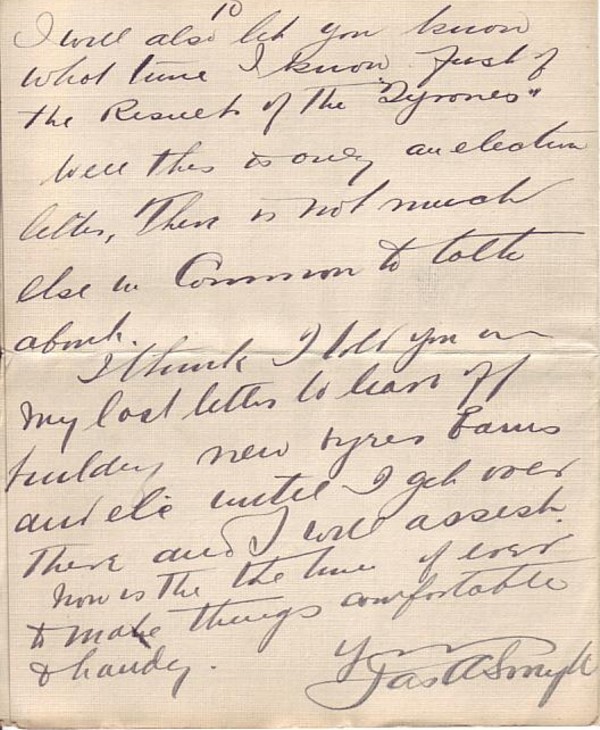 10
I will also let you know
what time I know. Just of
the Result of the "Tyrones"
Well this is only an election
letter, There is not much
else in Common to talk
about.
I think I told you in
my last letter to leave off
building new Barns
and etc until I get over
there and I will assist.
Now is the the time if ever
to make things comfortable
& handy.
Yours
Jas A Smyth